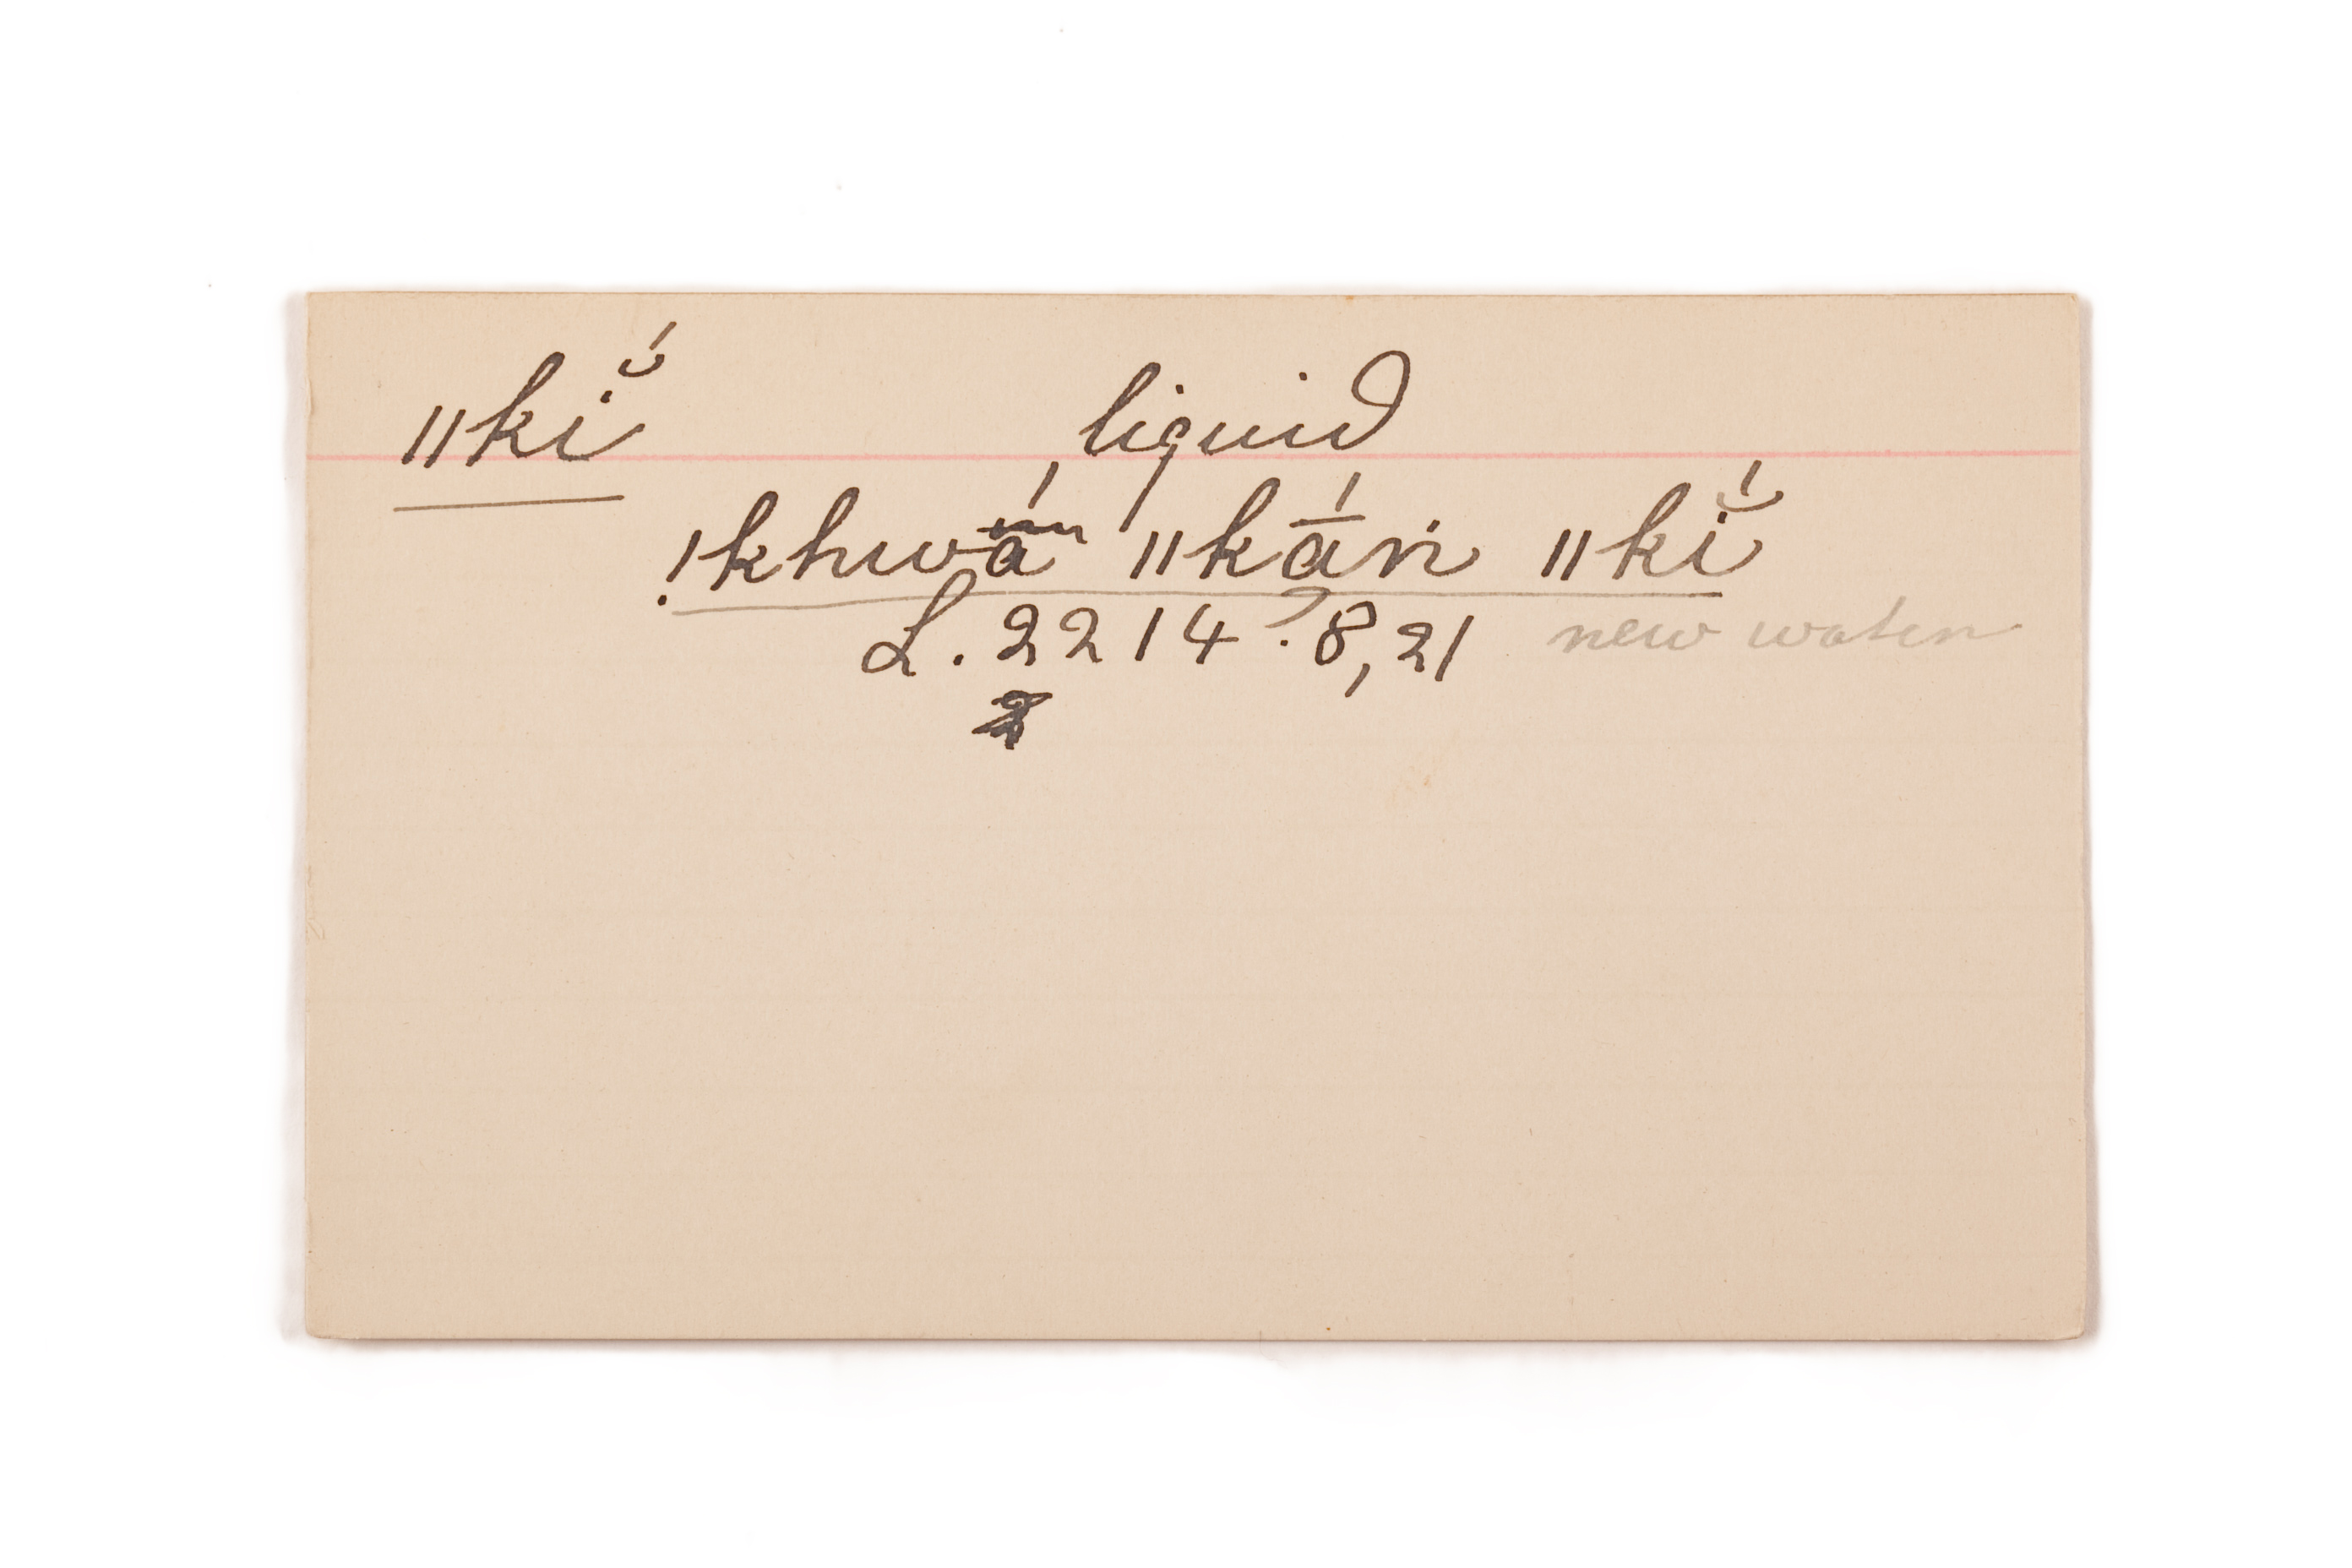 ǁkĭ́ liquid
!khwā́ ǁkā́ṅ ǁkĭ́
L. 2214 . 8, 21 new water